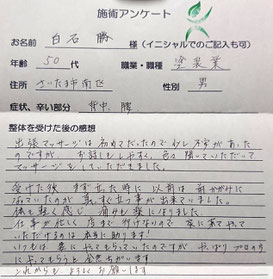 施術アンケート
お名前 白石 勝 様（イニシャルでのご記入も可）
年齢 50代 職業・職種 塗装業
住所 さいたま市南区 性別 男
症状、辛い部分 背中、腰
整体を受けた後の感想
出張マッサージは初めてだったので少し不安があった
のですが お話もしやすく、色々 聞いていただいて
マッサージをしていただきました。
受けた後 まず立った時に 以前は 前かがみに
なっていたのが 真っすぐ立つ事が出来ていました。
体も軽く感じ 痛みも楽になりました
仕事が忙しく 店まで行けないので 家に来てやって
いただけるのは 本当に助かります!
いつもは妻に やってもらっていたのですが やっぱりプロの方
にやってもらうと 全然ちがいます
これからも よろしくお願いします